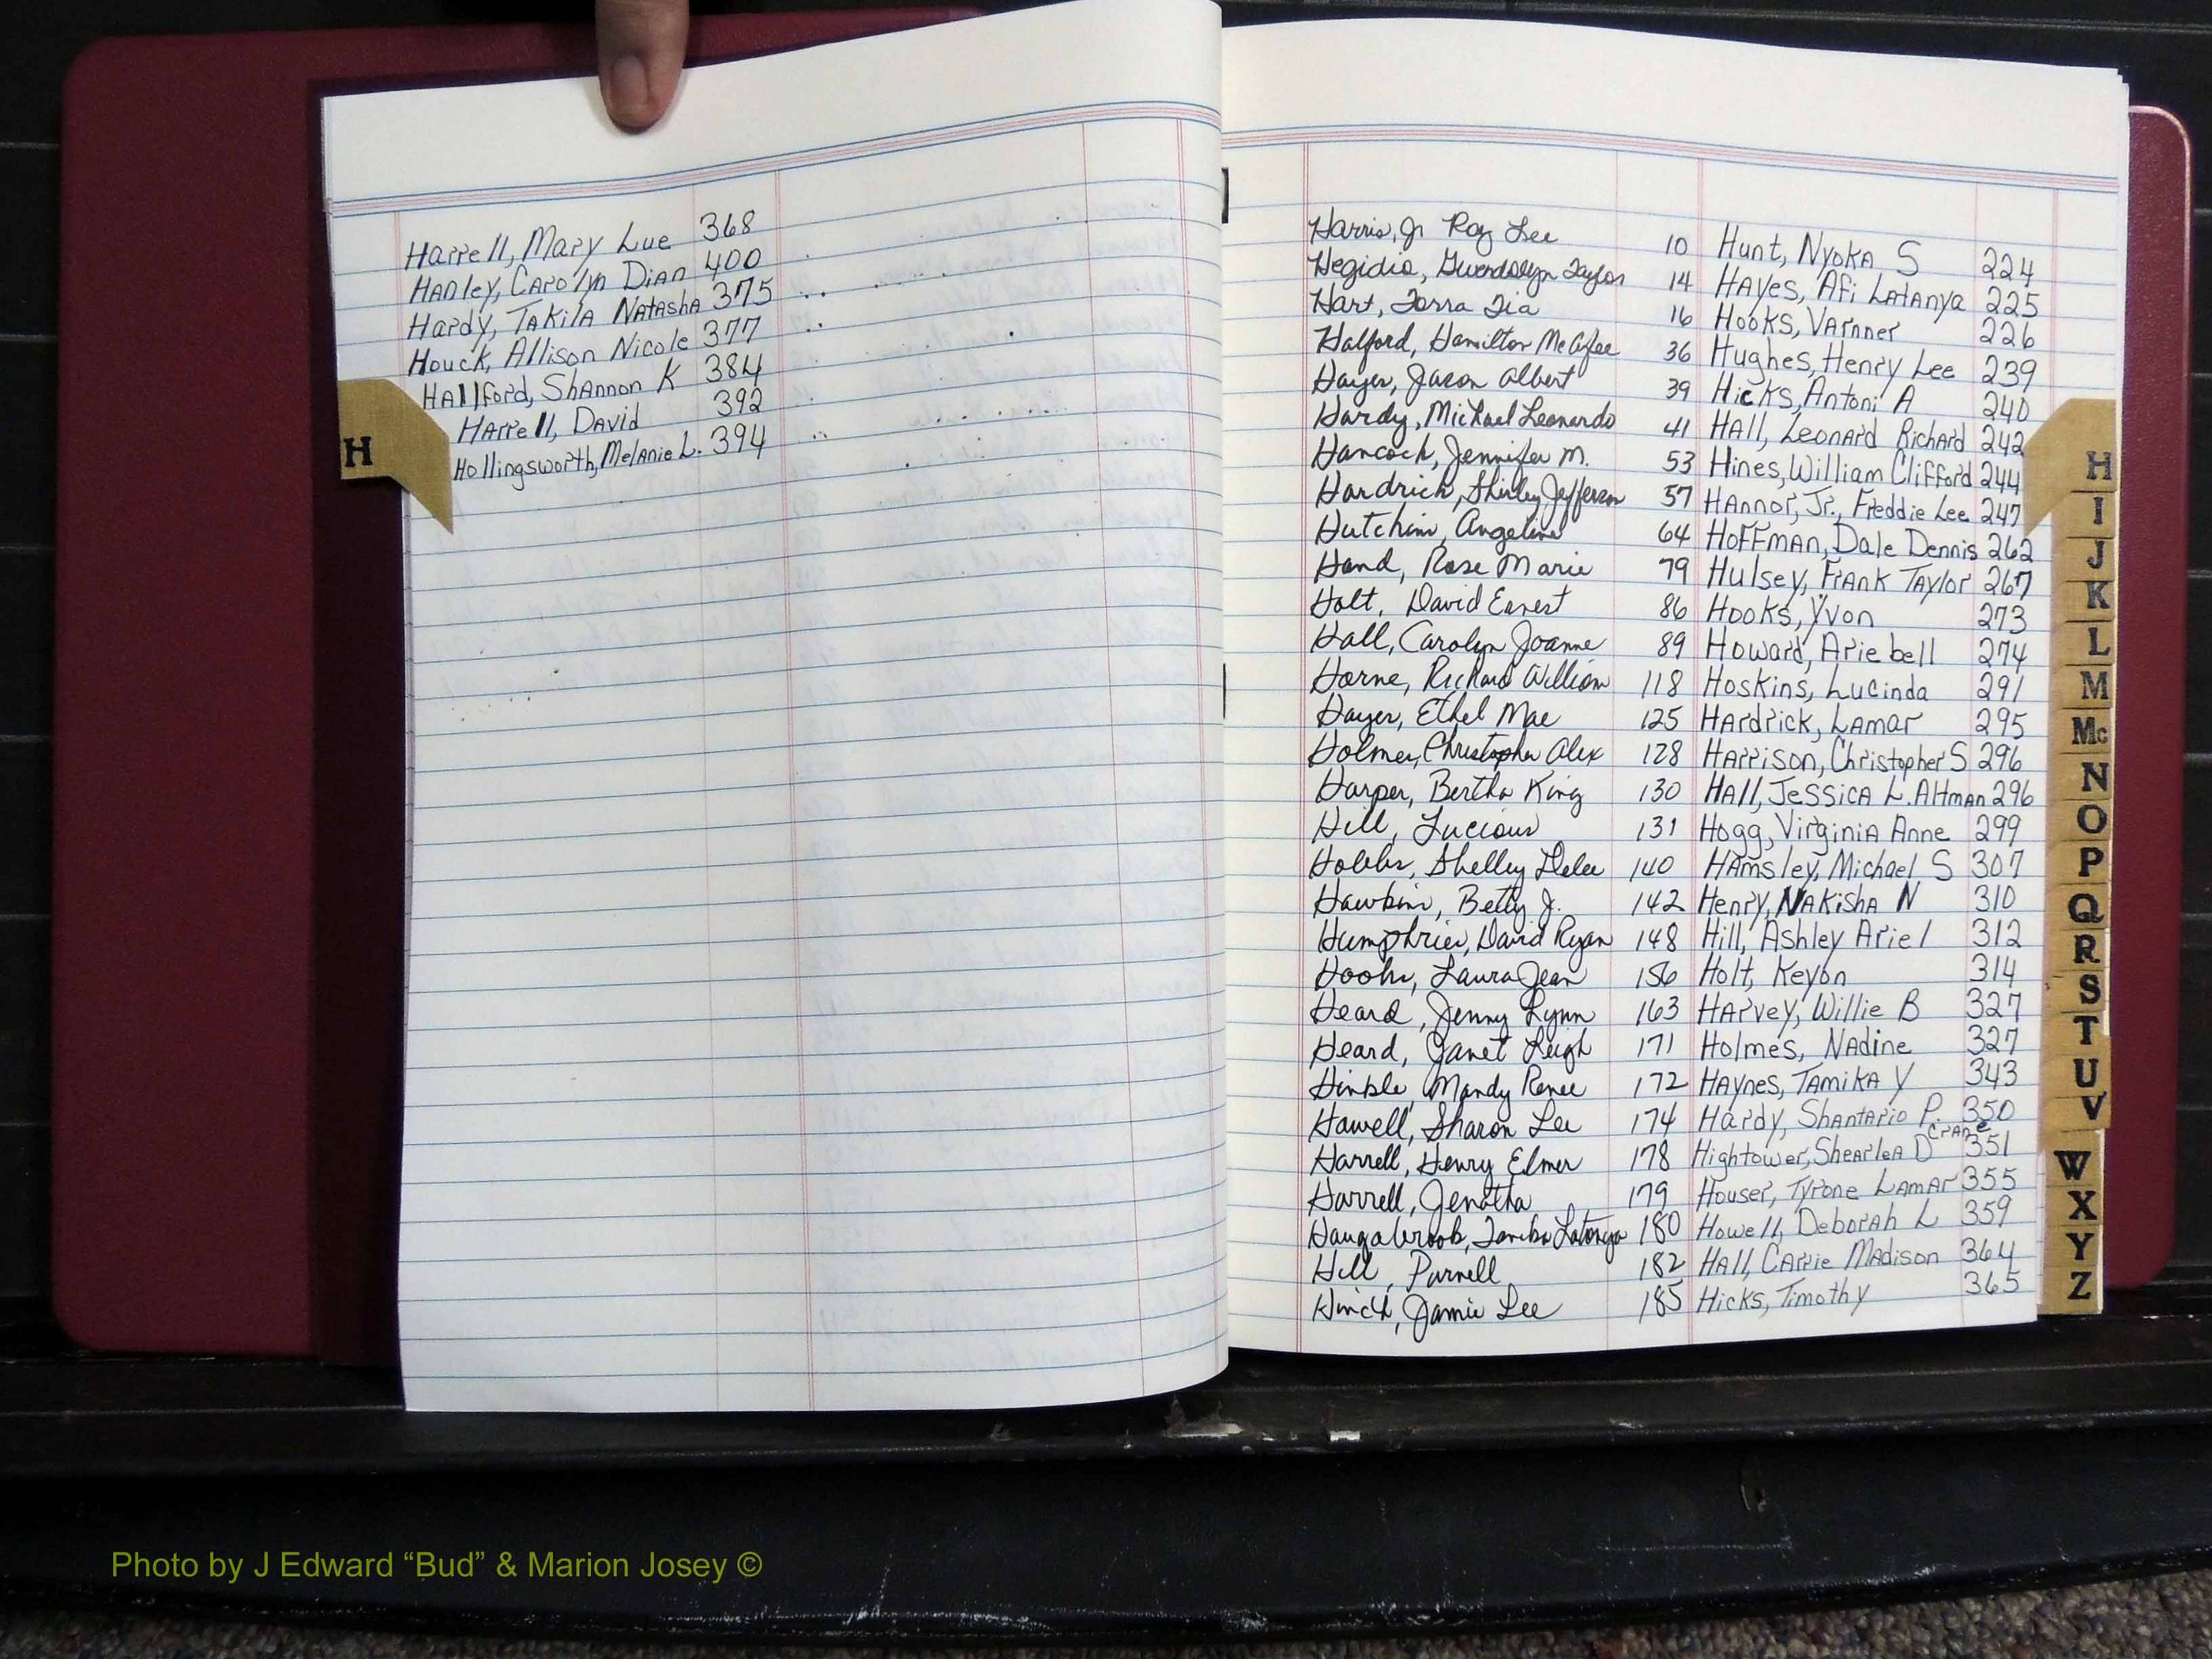 Harrell, Mary Lue 368
Hanley, Carolyn Dian 400
Hardy, Takila Natasha 375
Houck, Allison Nicole 377
Hallford, Shannon K 384
Harrell, David 392
Hollingsworth, Melanie L. 394
H
Harris, Jr Roy Lee 10
Hegidio, Gwendolyn Taylor 14
Hart, Torra Tia 16
Halford, Hamilton McAfee 36
Hayes, Jason Albert 39
Hardy, Michael Leonardo 41
Hancock, Jennifer M. 53
Hardrick, Shirley Jefferson 57
Hutchins, Angeline 64
Hand, Rose Marie 79
Holt, David Earnest 86
Hall, Carolyn Joanne 89
Horne, Richard William 118
Hayes, Ethel Mae 125
Holmes, Christopher Alex 128
Harper, Bertha King 130
Hill, Lucious 131
Hobbs, Shelley 140
Hawkins, Betty J. 142
Humphries, David Ryan 148
Hooks, Laura Jean 156
Heard, Jenny Lynn 163
Heard, Janet Leigh 171
Hinkle, Mandy Renee 172
Howell, Sharon Lee 174
Harrell, Henry Elmer 178
Harrell, Jenotha 179
Haugabrook, Tamika Latonya 180
Hill, Purnell 182
Hinch, Jamie Lee 185
Hunt, Nyoka S 224
Hayes, Afi Latanya 225
Hooks, Varnner 226
Hughes, Henry Lee 239
Hicks, Antoni A 240
Hall, Leonard Richard 242
Hines, William Clifford 244
Hannor, Jr., Freddie Lee 247
Hoffman, Dale Dennis 262
Hulsey, Frank Taylor 267
Hooks, Yvon 273
Howard, Arie bell 274
Hoskins, Lucinda 291
Hardrick, Lamar 295
Harrison, Christopher S 296
Hall, Jessica L. Altman 296
Hogg, Virginia Anne 299
Hamsley, Michael S 307
Henry, Nakisha N 310
Hill, Ashley Ariel 312
Holt, Keyon 314
Harvey, Willie B 327
Holmes, Nadine 327
Haynes, Tamika Y 343
Hardy, Shantario P. 350
Hightower, Shearlea D Crane 351
Houser, Tyrone Lamar 355
Howell, Deborah L 359
Hall, Carrie Madison 364
Hicks, Timothy 365
H
I
J
K
L
M
Mc
N
O
P
Q
R
S
T
U
V
W
X
Y
Z
Photo by J Edward “Bud” & Marion Josey ©